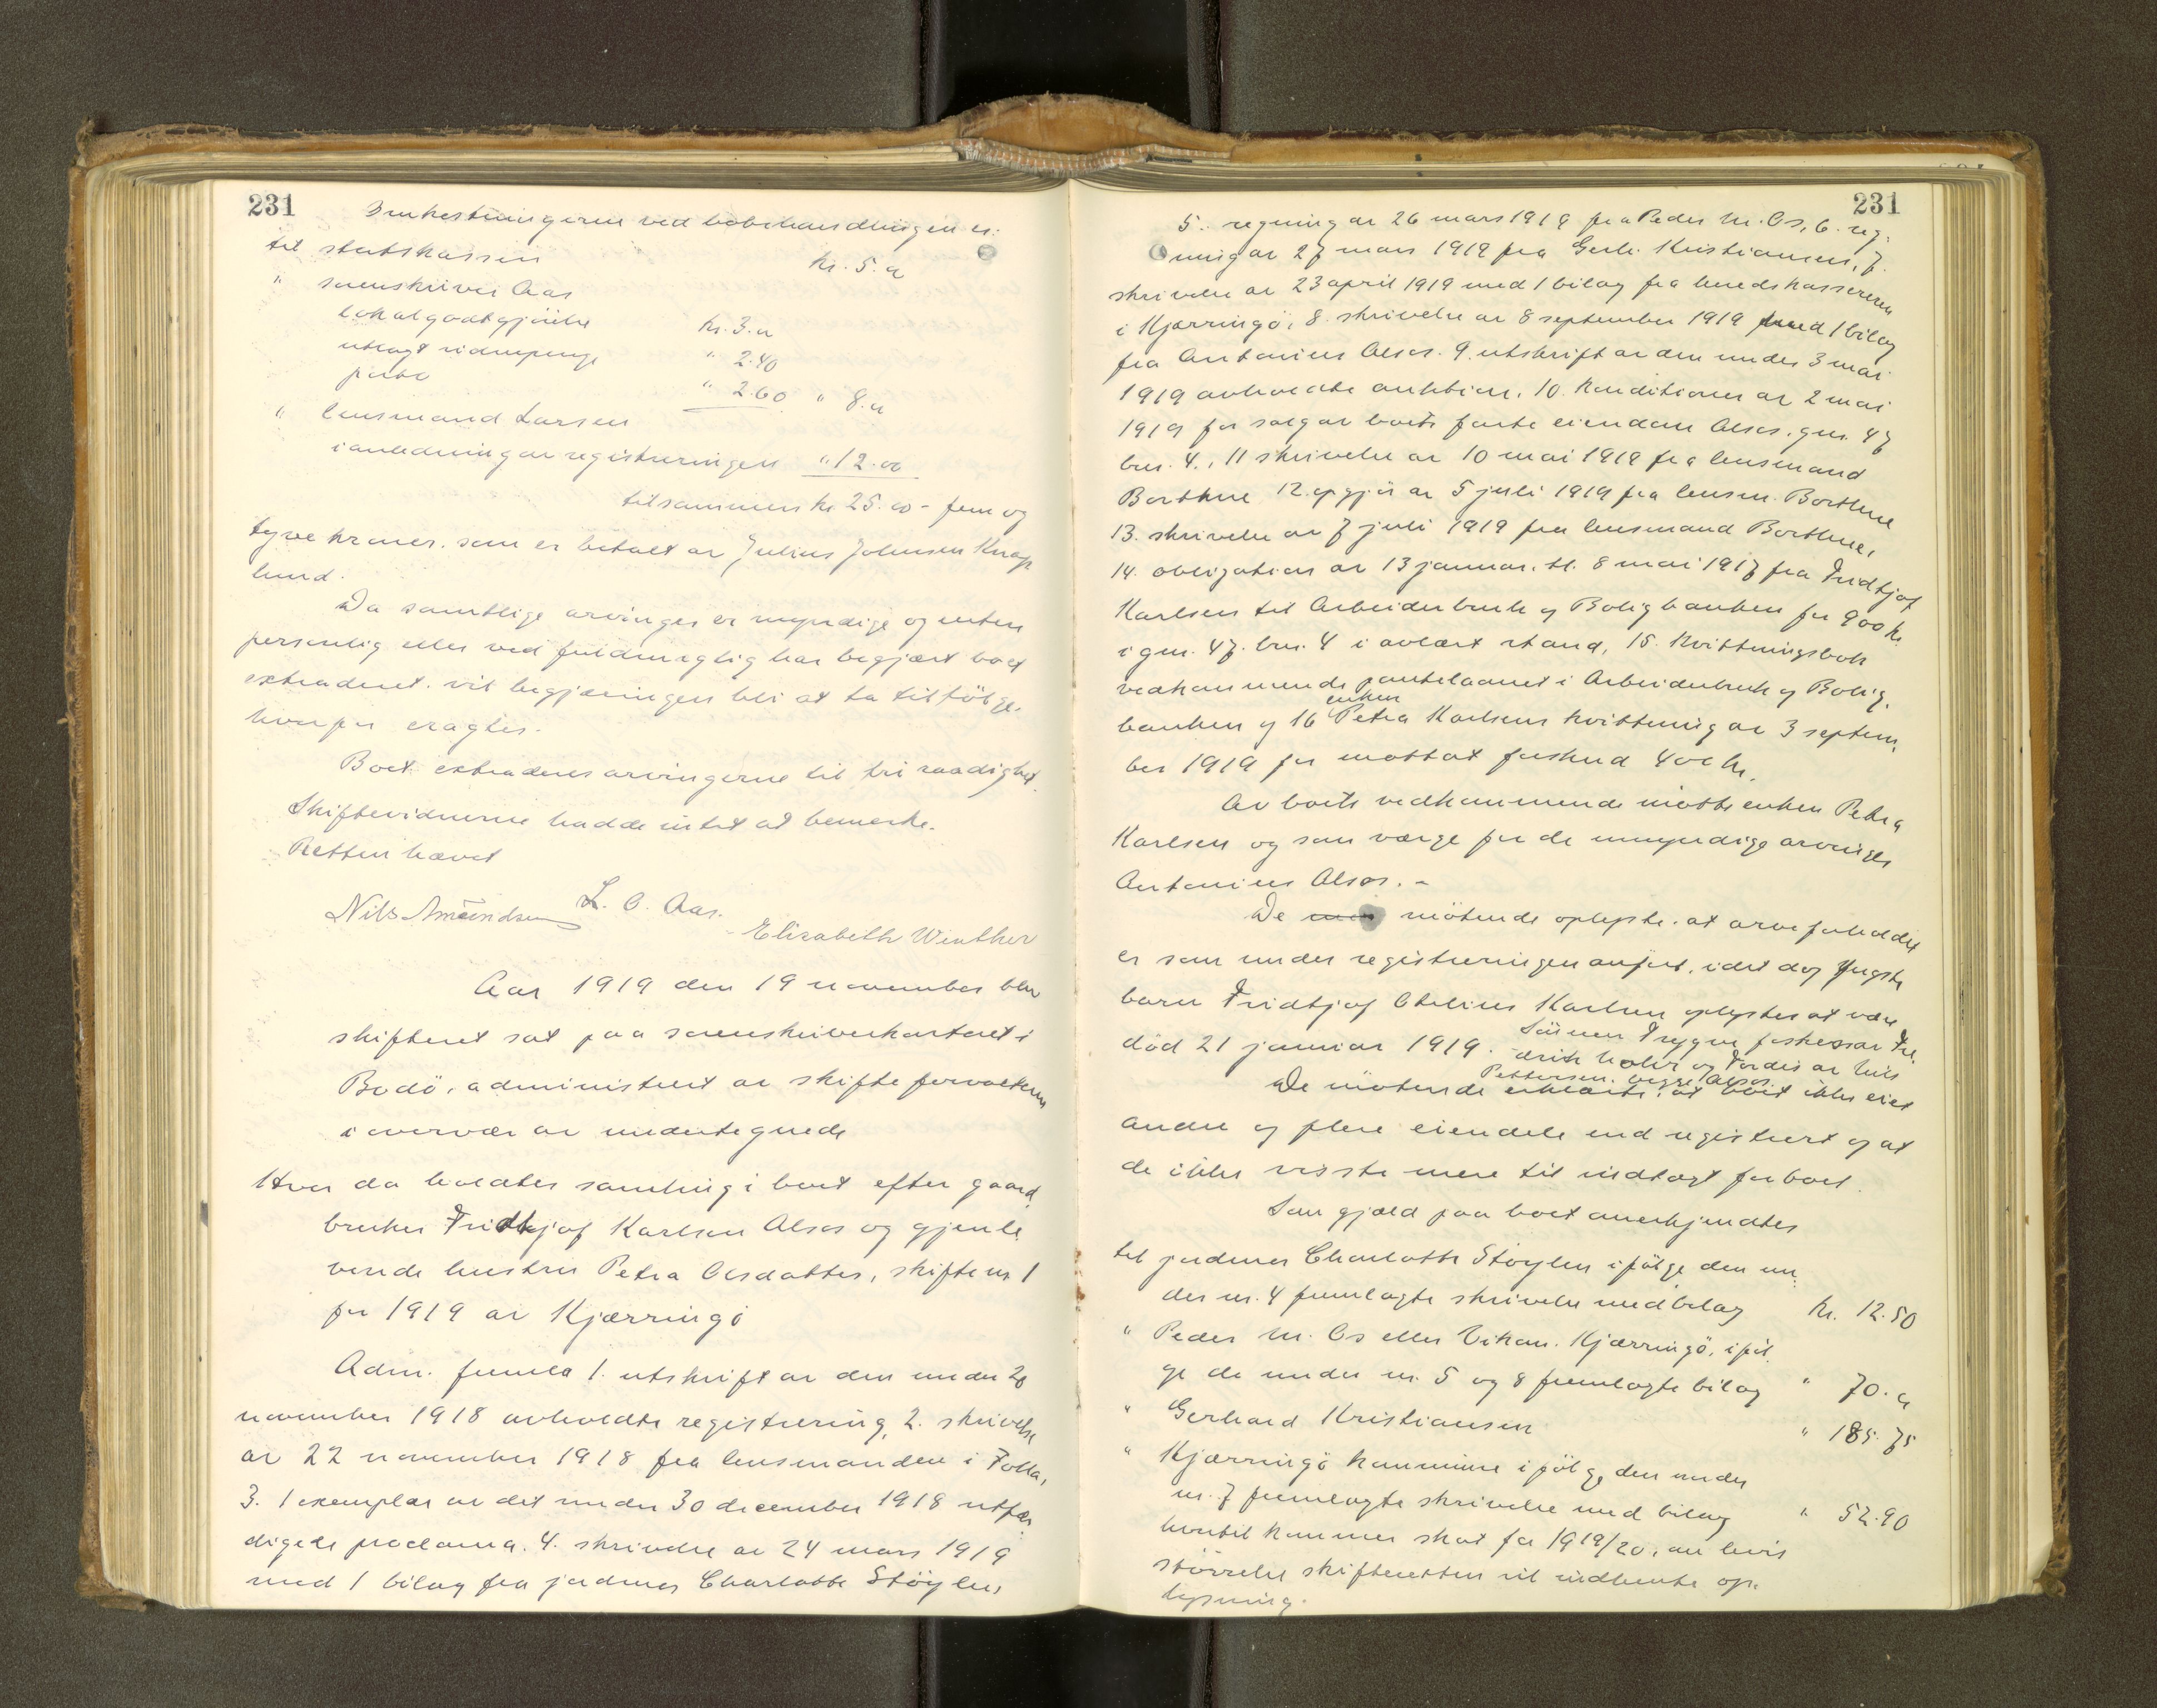 231
Omkostningerne ved bobehandlingen er:
til statskassen kr. 5.00
" sorenskriver Aas
lokalgodtgjörelse kr. 3.00
utlagt vidnepenge " 2.40
porto " 2.60 " 8.00
" lensmand Larsen
i anledning av registreringen " 12.00
tilsammen kr 25.00 - fem og
tyve kroner, som er betalt av Julius Johnsen Knap
lund.
Da samtlige arvinger er myndige og enten
personlig eller ved fuldmægtig har begjært boet
extraderet, vil begjæringen bli at ta tilfölge,
hvorfor eragtes.
Boet extraderes arvingerne til fri raadighet.
Skiftevidnerne hadde intet at bemerke.
Retten hævet
L. C. Aas.
Nils Amundsen Elisabeth Winther
Aar 1919 den 19 november blev
skifteret sat paa sorenskriverkontoret i
Bodö, administrert av skifteforvalteren
i overvær av undertegnede
Hvor da holdtes samling i boet efter gaard
bruker Fridtjof Karlsen Alsos og gjenle
vende hustru Petra Olsdatter, skifte nr. 1
for 1919 av Kjærringö
Adm. fremla 1. utskrift av den under 20
november 1918 avholdte registrering, 2. skrivelse
av 22 november 1918 fra lensmanden i Folla,
3. 1 exemplar av det under 30 december 1918 utfær
digede proclama. 4. skrivelse av 24 mars 1919
med 1 bilag fra jordmor Charlotte Stöylen,
231
5. regning av 26 mars 1919 fra Peder M. Os, 6. reg-
ning av 27 mars 1919 fra Gerh. Kristiansen, 7.
skrivelse av 23 april 1919 med 1 bilag fra herredskassereren
i Kjærringö, 8. skrivelse av 8 september 1919 med 1 bilag
fra Antonius Alsos. 9. utskrift av den under 3 mai
1919 avholdte auktion. 10. Konditioner av 2 mai
1919 for salg av boets faste eiendom Alsos, gnr. 47
bnr. 4., 11 skrivelse av 10 mai 1919 fra lensmand
Borthne 12. opgjör av 5 juli 1919 fra lensm. Borthne
13. skrivelse av 7 juli 1919 fra lensmand Borthne,
14. obligation av 13 januar, tl. 8 mai 1917 fra Fridtjof
Karlsen til Arbeiderbruk og Boligbanken for 900 kr.
i gnr. 47. bnr. 4 i avlæst stand, 15. kvitteringsbok
vedkommende pantelaanet i Arbeiderbruk og Bolig-
enken
banken og 16 Petra Karlsens kvittering av 3 septem
ber 1919 for mottat forskud 400 kr.
Av boets vedkommende mötte enken Petra
Karlsen og som værge for de umyndige arvinger
Antonius Alsos. -
De mötende oplyste, at arveforholdet
er som under registreringen anfört, idet dog yngste
barn Fridtjof Karlsen oplystes at være
död 21 januar 1919. Sönnen Trygve forsörges av Fre
drik Helv og Fordis av Nils
Pettersen, begge Alsos.
De mötende erklærte, at boet ikke eiet
andre og flere eiendele end registrert og at
de ikke visste mere til indtægt for boet.
Som gjæld paa boet anerkjendtes
til jordmor Charlotte Stöylen ifölge den un
der nr. 4 fremlagte skrivelse med bilag kr. 12.50
" Peder M. Os eller Vikan. Kjærringö, iföl
ge de under nr. 5 og 8 fremlagte bilag " 70.00
" Gerhard Kristiansen " 185.75
" Kjærringö kommune ifölge den under
nr. 7 fremlagte skrivelse med bilag " 52.90
hvortil kommer skat for 1919/20, om hvis
störrelse skifteretten vil indhente op-
lysning.